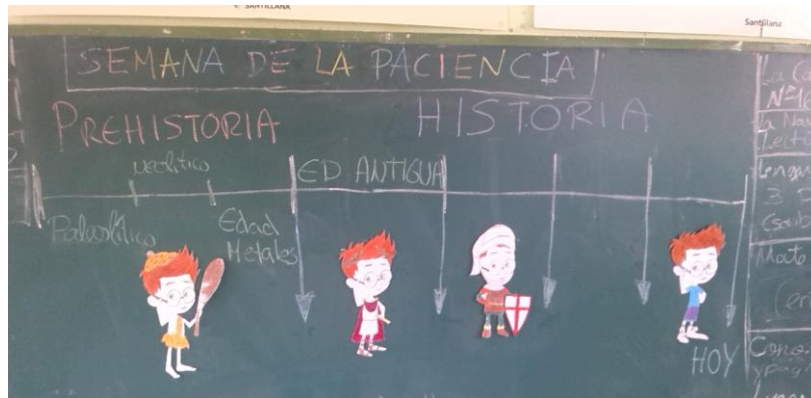 SANTILLANA
Santillana
SEMANA DE LA PACIENCIA
PREHISTORIA
HISTORIA
NEOLÍTICO
ED ANTIGUA
Paleolítico
Edad
Metales
HOY
La
Nº
la
Lengua
3
Mate
Cono